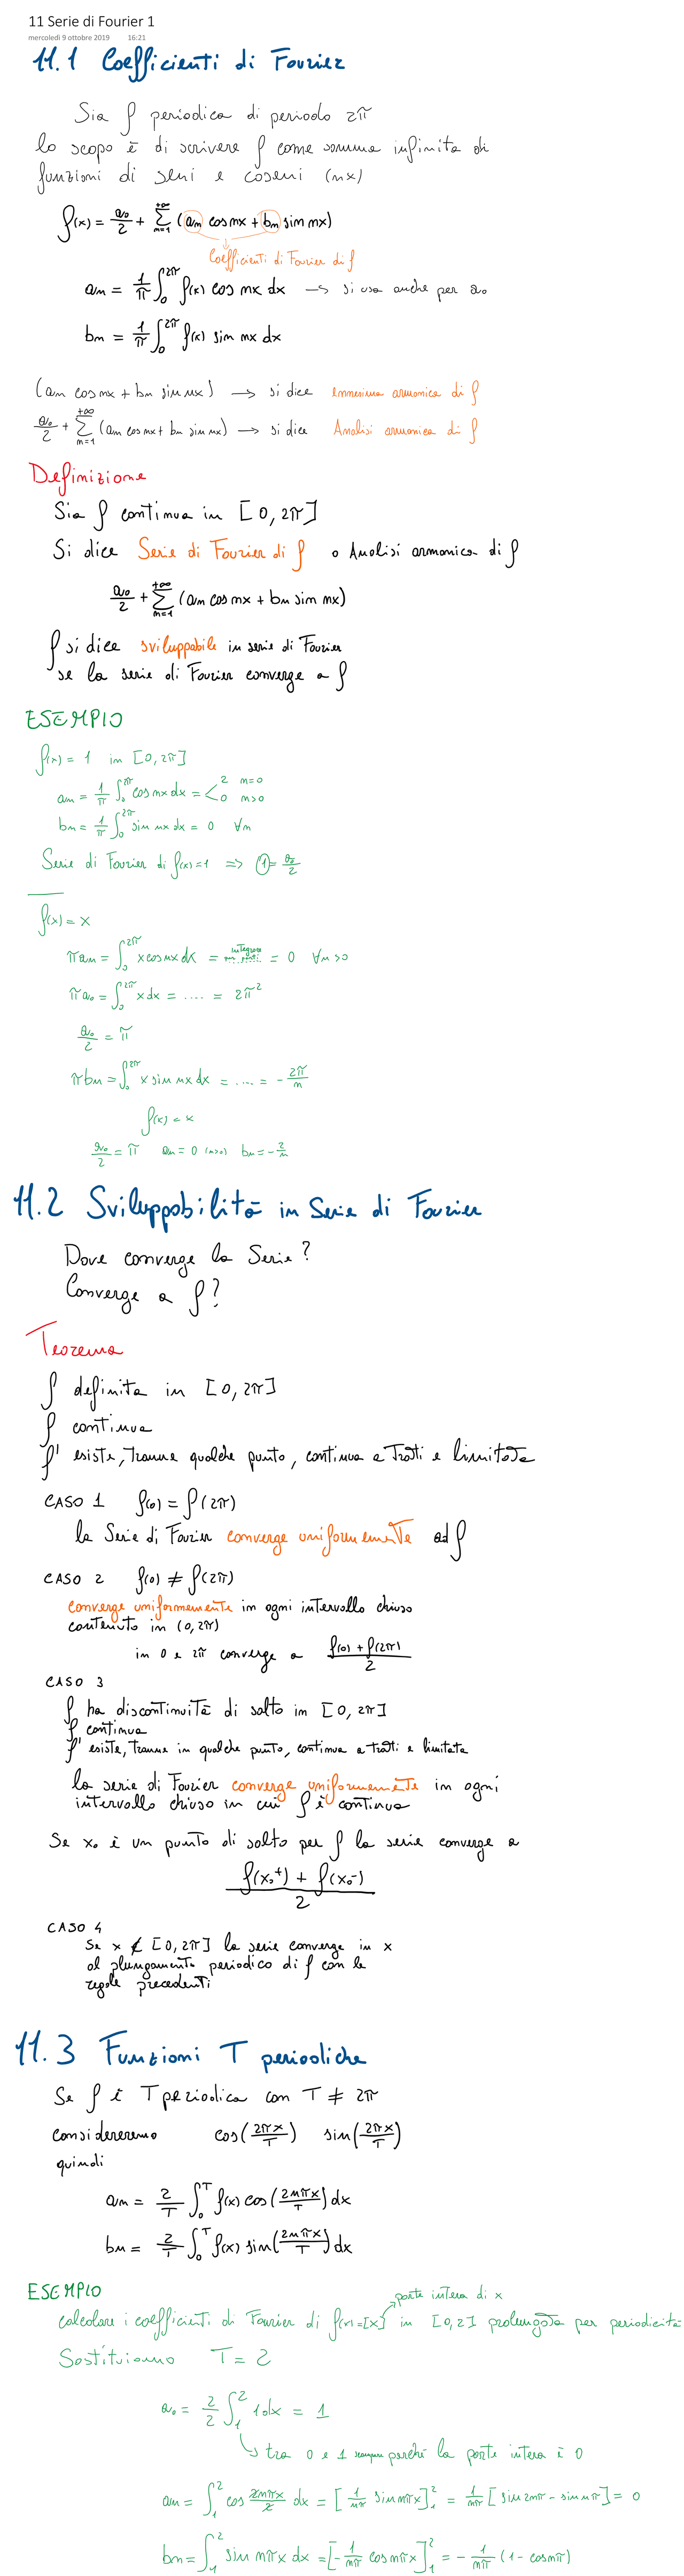 11 Serie di Fourier 1
mercoledì 9 ottobre 2019 16:21
11.1 Coefficienti di Fourier
Sia f periodica di periodo 2π
lo scopo è di scrivere f come somma infinita di
funzioni di seni e coseni (nx)
f(x) = a₀/2 + Σ_{n=1}^{+∞} (aₙ cos nx + bₙ sin nx)
Coefficienti di Fourier di f
aₙ = 1/π ∫₀^{2π} f(x) cos nx dx → si usa anche per a₀
bₙ = 1/π ∫₀^{2π} f(x) sin nx dx
(aₙ cos nx + bₙ sin nx) → si dice ennesima armonica di f
a₀/2 + Σ_{n=1}^{+∞} (aₙ cos nx + bₙ sin nx) → si dice Analisi armonica di f
Definizione
Sia f continua in [0, 2π]
Si dice Serie di Fourier di f o Analisi armonica di f
a₀/2 + Σ_{n=1}^{+∞} (aₙ cos nx + bₙ sin nx)
f si dice sviluppabile in serie di Fourier
se la serie di Fourier converge a f
ESEMPIO
f(x) = 1 in [0, 2π]
aₙ = 1/π ∫₀^{2π} cos nx dx = < 2 n=0
0 n>0
bₙ = 1/π ∫₀^{2π} sin nx dx = 0 ∀n
Serie di Fourier di f(x)=1 ⇒ 1 = a₀/2
f(x) = x
πaₙ = ∫₀^{2π} x cos nx dx = integro per parti = 0 ∀n>0
πa₀ = ∫₀^{2π} x dx = .... = 2π²
a₀/2 = π
πbₙ = ∫₀^{2π} x sin nx dx = .... = - 2π/n
f(x) = x
a₀/2 = π aₙ = 0 (n>0) bₙ = - 2/n
11.2 Sviluppabilità in Serie di Fourier
Dove converge la Serie?
Converge a f?
Teorema
f definita in [0, 2π]
f continua
f' esiste, tranne qualche punto, continua a tratti e limitata
CASO 1 f(0) = f(2π)
la Serie di Fourier converge uniformemente ad f
CASO 2 f(0) ≠ f(2π)
converge uniformemente in ogni intervallo chiuso
contenuto in (0, 2π)
in 0 e 2π converge a f(0) + f(2π) / 2
CASO 3
f ha discontinuità di salto in [0, 2π]
f continua
f' esiste, tranne in qualche punto, continua a tratti e limitata
la serie di Fourier converge uniformemente in ogni
intervallo chiuso in cui f è continua
Se x₀ è un punto di salto per f la serie converge a
f(x₀⁺) + f(x₀⁻) / 2
CASO 4
Se x ∉ [0, 2π] la serie converge in x
al plungamento periodico di f con le
regole precedenti
11.3 Funzioni T periodiche
Se f è T periodica con T ≠ 2π
considereremo cos(2πx/T) sin(2πx/T)
quindi
aₙ = 2/T ∫₀^T f(x) cos(2nπx/T) dx
bₙ = 2/T ∫₀^T f(x) sin(2nπx/T) dx
ESEMPIO
parte intera di x
calcolare i coefficienti di Fourier di f(x)=[x] in [0,2] prolungata per periodicità
Sostituiamo T = 2
a₀ = 2/2 ∫₁² 1 dx = 1
tra 0 e 1 perché la parte intera è 0
aₙ = ∫₁² cos 2nπx/2 dx = [1/nπ sin nπx]₁² = 1/nπ [sin 2nπ - sin nπ] = 0
bₙ = ∫₁² sin nπx dx = [-1/nπ cos nπx]₁² = - 1/nπ (1 - cos nπ)